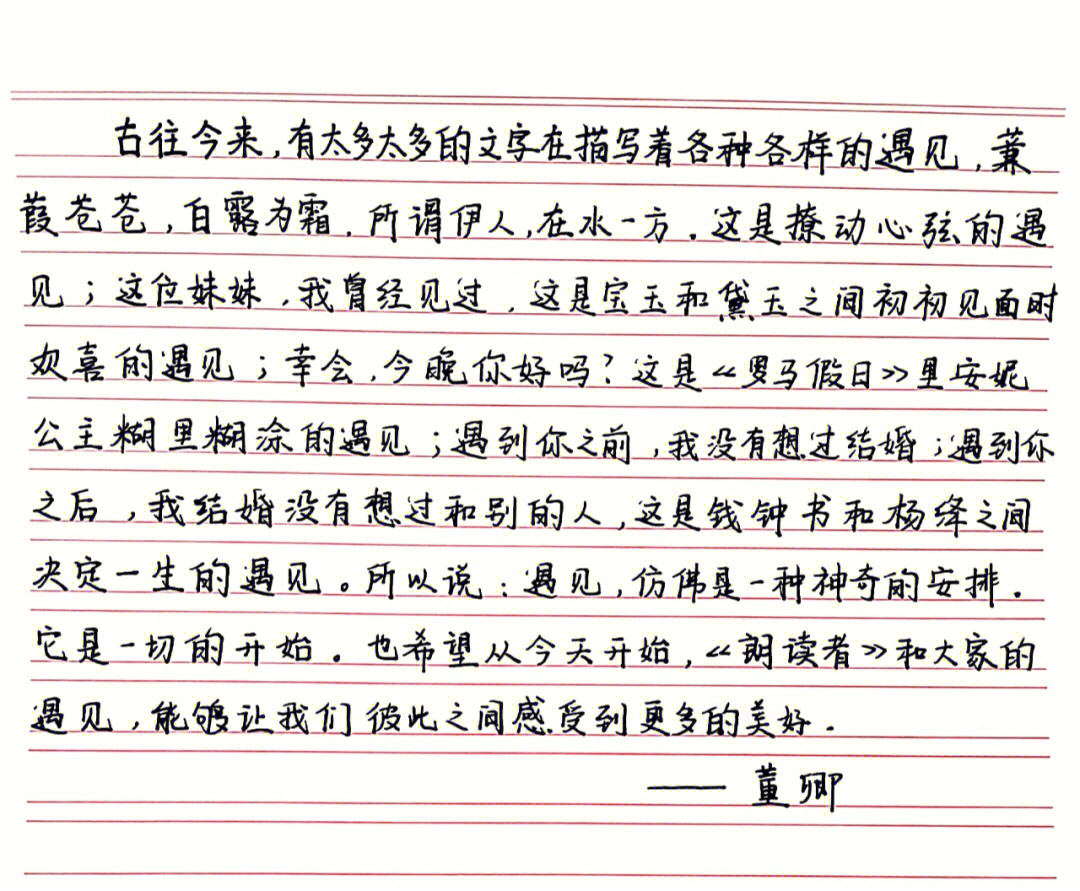 古往今来,有太多太多的文字在描写着各种各样的遇见,蒹
葭苍苍,白露为霜.所谓伊人,在水一方.这是撩动心弦的遇
见;这位妹妹,我曾经见过,这是宝玉和黛玉之间初初见面时
欢喜的遇见;幸会,今晚你好吗?这是《罗马假日》里安妮
公主糊里糊涂的遇见;遇到你之前,我没有想过结婚;遇到你
之后,我结婚没有想过和别的人,这是钱钟书和杨绛之间
决定一生的遇见。所以说:遇见,仿佛是一种神奇的安排.
它是一切的开始.也希望从今天开始,《朗读者》和大家的
遇见,能够让我们彼此之间感受到更多的美好.
——董卿